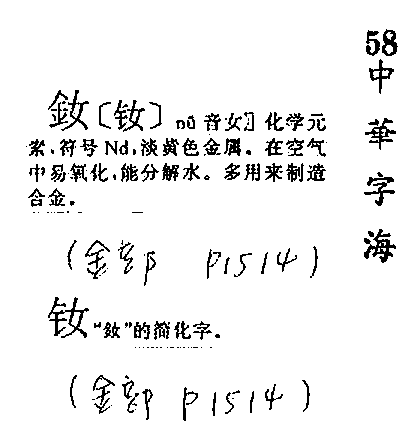 58
中華字海
釹〔钕〕 nǚ 音女〕化学元
素,符号 Nd,淡黄色金属。在空气
中易氧化,能分解水。多用来制造
合金。
(金部 P1514)
钕 “釹”的简化字。
(金部 P1514)